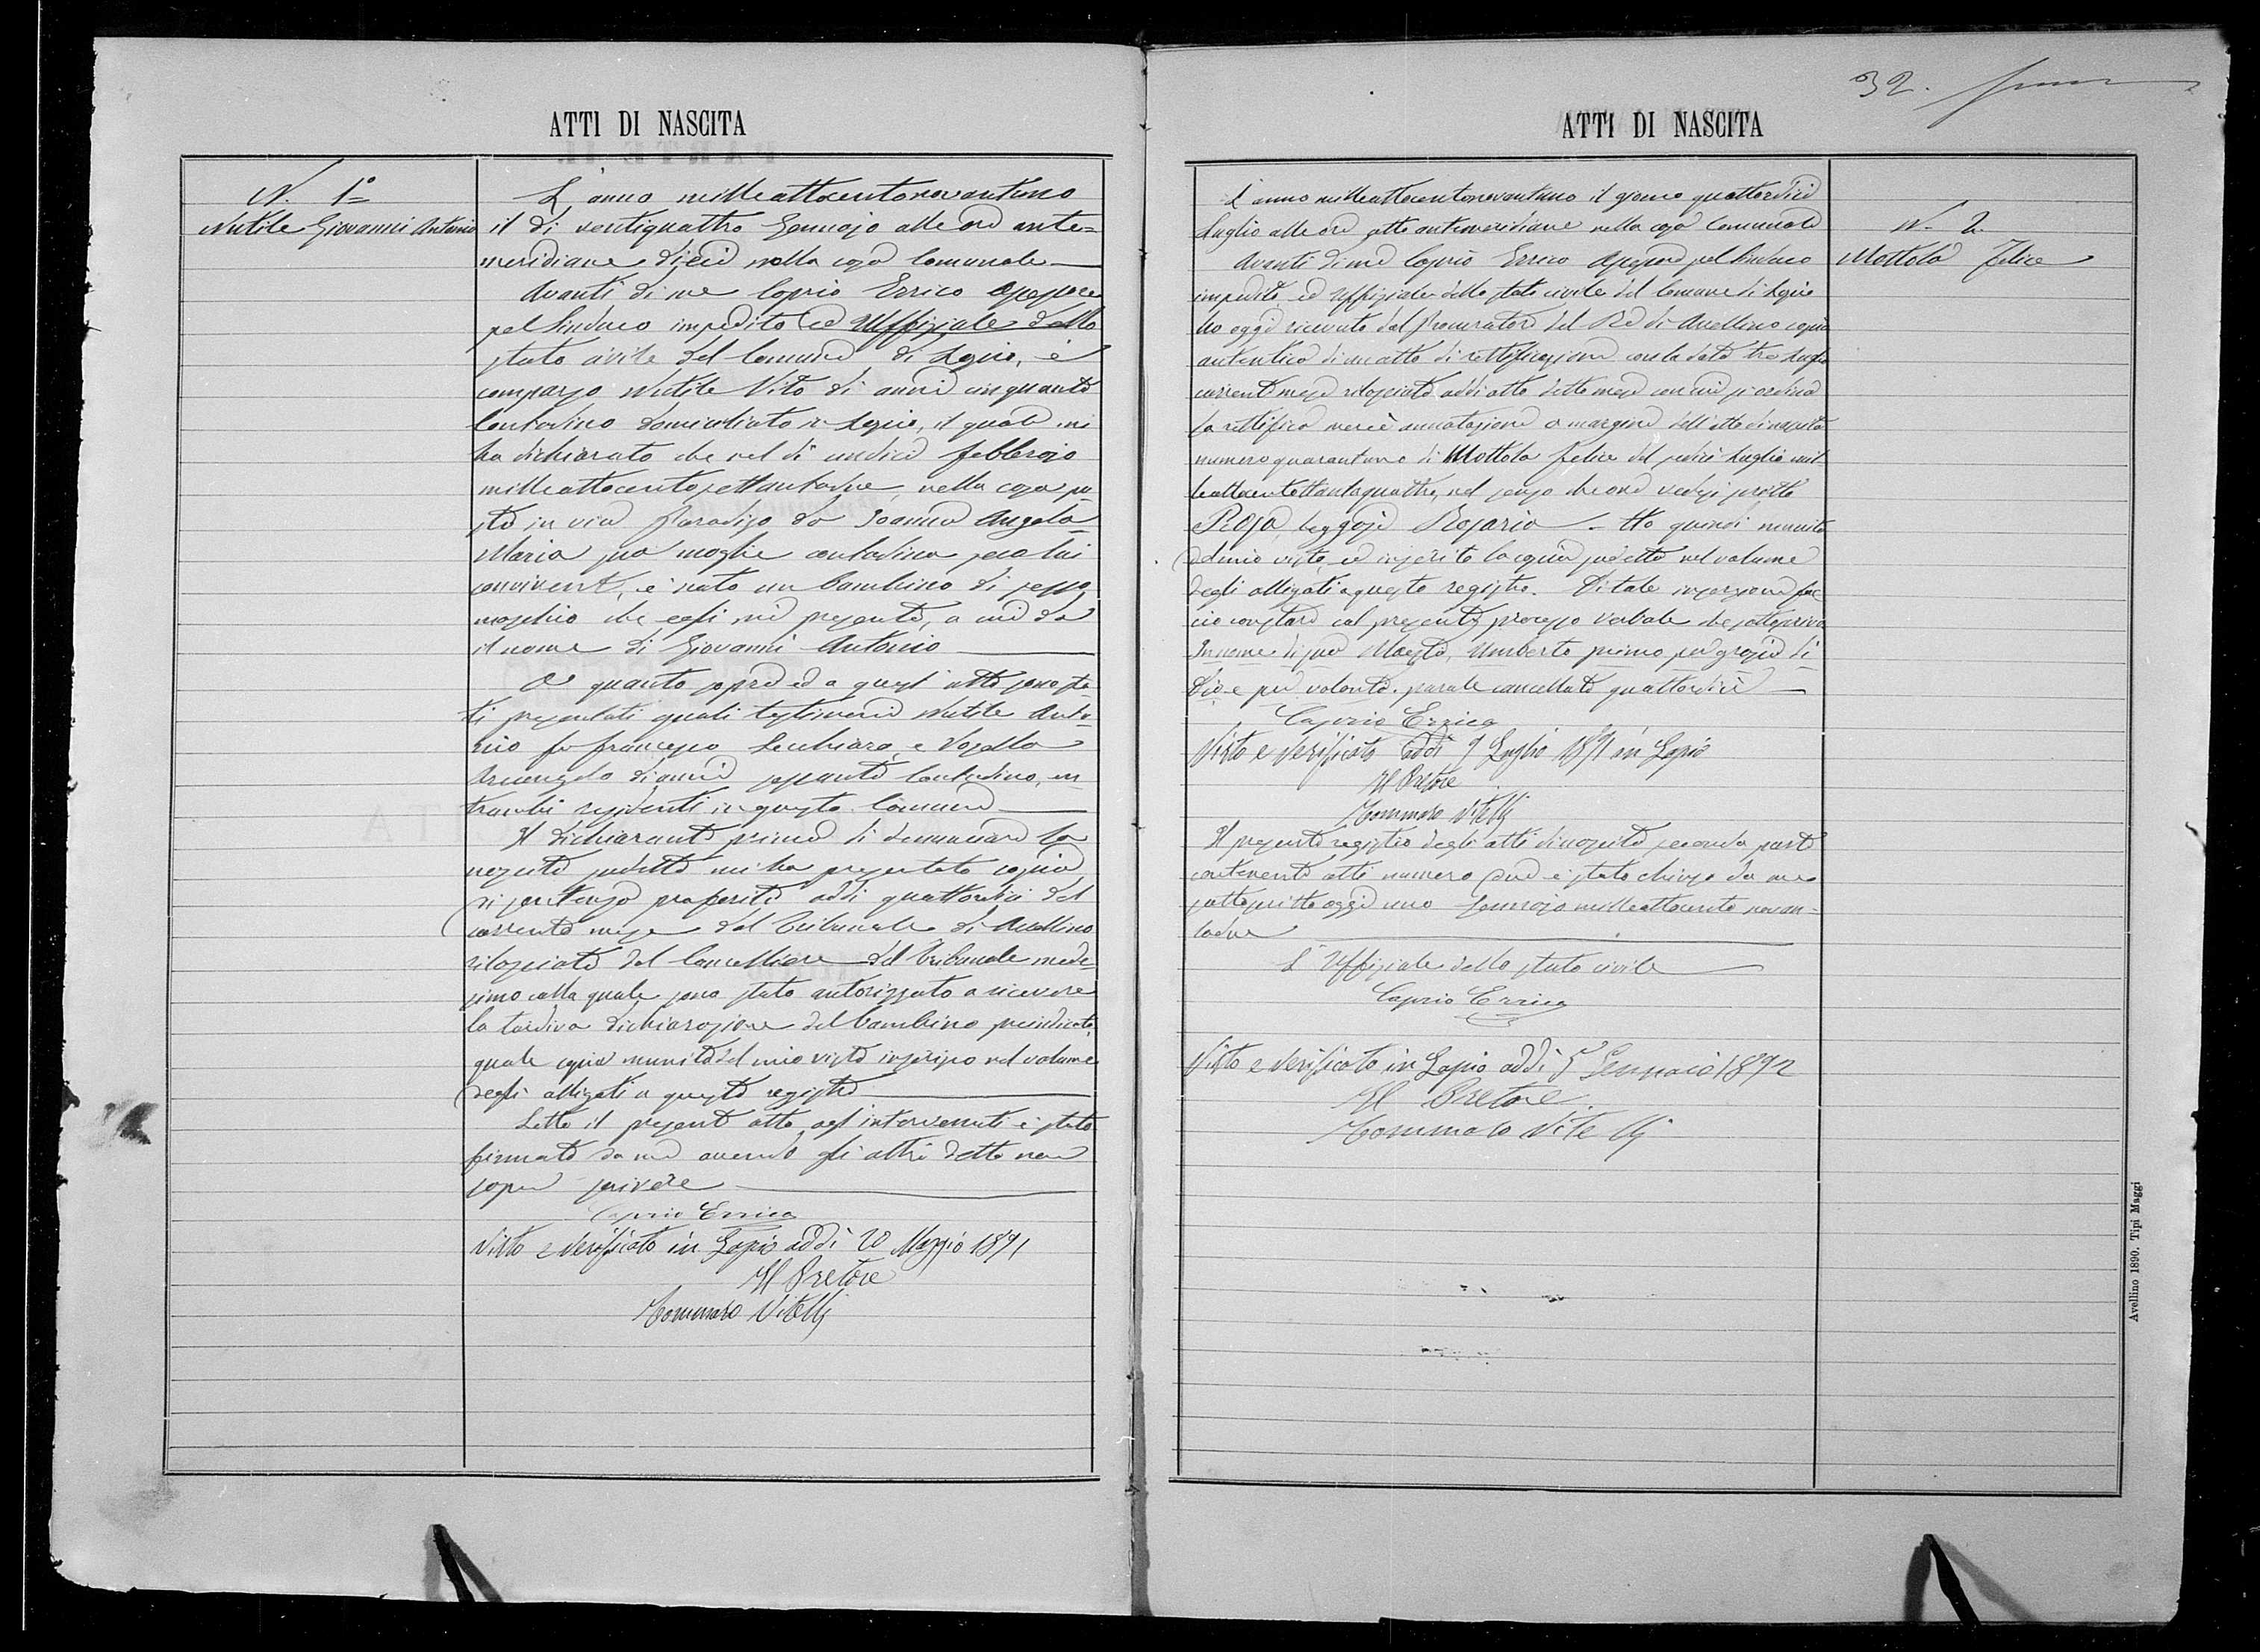 ATTI DI NASCITA
N. 1º
Nutile Giovanni Antonio
L'anno milleottocentonovantuno
il dì ventiquattro Gennajo alle ore ante=
meridiane dieci nella casa Comunale
Avanti di me Caprio Errico Assessore
pel Sindaco impedito ed Uffiziale dello
stato civile del Comune di Lapio, è
comparso Nutile Vito di anni cinquanta
Contadino domiciliato in Lapio, il quale mi
ha dichiarato che nel dì undici febbrajo
milleottocentosettantadue, nella casa po=
sta in via Paradiso da Joanna Angela
Maria sua moglie contadina seco lui
convivente, è nato un bambino di sesso
maschio che egli mi presenta, a cui dà
il nome di Giovanni Antonio
A quanto sopra ed a quest'atto sono sta=
ti presentati quali testimonii Nutile Anto=
nio fu Francesco e
Arcangelo di anni sessanta Contadino, en
trambi residenti in questo Comune
Il dichiarante prima di denunciare la
nascita suddetta mi ha presentato copia
di sentenza proferita addì quattordici del
corrente mese dal Tribunale di Avellino
rilasciata dal Cancelliere del Tribunale mede=
simo colla quale sono stato autorizzato a ricevere
la tardiva dichiarazione del bambino preindicato,
quale copia munita del mio visto inserisco nel volume
degli alligati a questo registro
Letto il presente atto agl'intervenuti è stato
firmato da me avendo gli altri detto non
saper scrivere
Caprio Errico
Visto e verificato in Lapio addì 20 Maggio 1891
Il Pretore
Tommaso Vitelli
32.
ATTI DI NASCITA
N. 2
Mottola Felice
L'anno milleottocentonovantuno il giorno quattordici
Luglio alle ore sette antimeridiane nella casa Comunale
Avanti di me Caprio Errico Assessore pel Sindaco
impedito ed Uffiziale dello stato civile del Comune di Lapio
Ho oggi ricevuto dal Procuratore del Re di Avellino copia
autentica di un atto di rettificazione con la data tre Luglio
corrente mese rilasciata addì otto detto mese con cui si ordina
la rettifica mercè annotazione a margine dell'atto di nascita
numero quarantuno di Mottola Felice del sedici Luglio mil=
leottocentottantaquattro, nel senso che ove vedesi scritto
Rosa, leggasi Rosaria. Ho quindi munita
del mio visto, ed inserito la copia suddetta nel volume
degli alligati a questo registro. Di tale inserzione fac=
cio constare col presente processo verbale che sottoscrivo
In nome di sua Maestà, Umberto primo per grazia di
Dio e per volontà. parole cancellate quattordici
Caprio Errico
Visto e verificato addì 9 Luglio 1891 in Lapio
Il Pretore
Tommaso Vitelli
Il presente registro degli atti di nascita seconda parte
contenente atti numero due è stato chiuso da me
sottoscritto oggi uno Gennajo milleottocento novan=
tadue
L'Uffiziale dello stato civile
Caprio Errico
Visto e verificato in Lapio addì 5 Gennaio 1892
Il Pretore
Tommaso Vitelli
Avellino 1890. Tipi Maggi